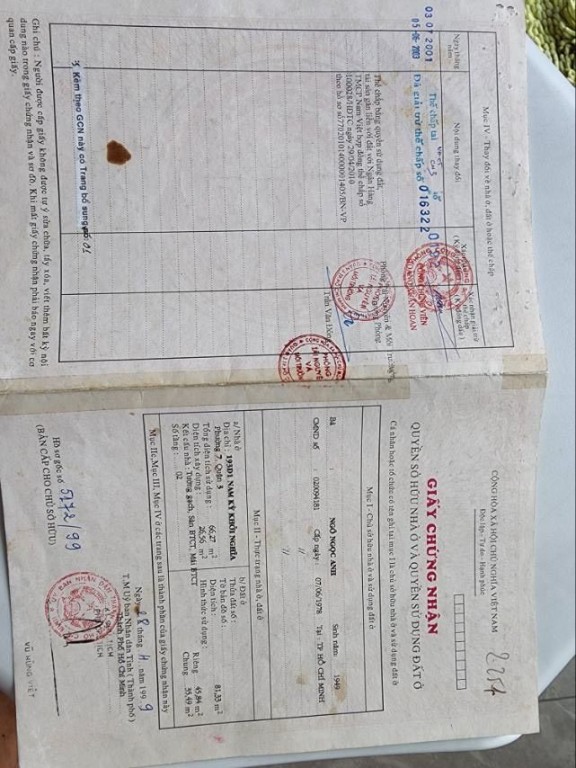 CỘNG HÒA XÃ HỘI CHỦ NGHĨA VIỆT NAM
Độc lập - Tự do - Hạnh phúc
2254
GIẤY CHỨNG NHẬN
QUYỀN SỞ HỮU NHÀ Ở VÀ QUYỀN SỬ DỤNG ĐẤT Ở
Cá nhân hoặc tổ chức có tên ghi tại mục I là chủ sở hữu nhà ở và sử dụng đất ở
Mục I - Chủ sở hữu nhà ở và sử dụng đất ở
Bà : NGÔ NGỌC ANH Sinh năm : 1949
CMND số : 020094181 Cấp ngày : 07/06/1978 Tại : TP HỒ CHÍ MINH
Mục II - Thực trạng nhà ở, đất ở
a/ Nhà ở
Địa chỉ : NAM KỲ KHỞI NGHĨA
Phường 7, Quận 3
Tổng diện tích sử dụng : 66,27 m²
Diện tích xây dựng : 26,56 m²
Kết cấu nhà : Tường gạch, Sàn BTCT, Mái BTCT
Số tầng : 02
b/ Đất ở
Thửa đất số :
Tờ bản đồ số :
Diện tích : 81,33 m²
Hình thức sử dụng :
Riêng 45,84 m²
Chung 35,49 m²
Mục IIc, Mục III, Mục IV ở các trang sau là thành phần của giấy chứng nhận này
Ngày 18 tháng 1999
T.M Uỷ ban Nhân dân Tỉnh (Thành phố)
Thành Phố Hồ Chí Minh
VŨ HÙNG VIỆT
Hồ sơ gốc số 5172/99
(BẢN CẤP CHO CHỦ SỞ HỮU)
Mục IV - Thay đổi về nhà ở, đất ở hoặc thế chấp
Ngày tháng năm
Nội dung thay đổi
03 07 2001
Thế chấp tại số
05-06-2003
Đã giải trừ thế chấp số 016322
Thế chấp bằng quyền sử dụng đất,
tài sản gắn liền với đất với Ngân Hàng
TMCP Nam Việt hợp đồng thế chấp số
ngày 29/04/2010
Kèm theo GCN này có Trang bổ sung số 01
Ghi chú : Người được cấp giấy không được tự ý sửa chữa, tẩy xóa, viết thêm bất kỳ nội
dung nào trong giấy chứng nhận và sơ đồ. Khi mất giấy chứng nhận phải báo ngay với cơ
quan cấp giấy.